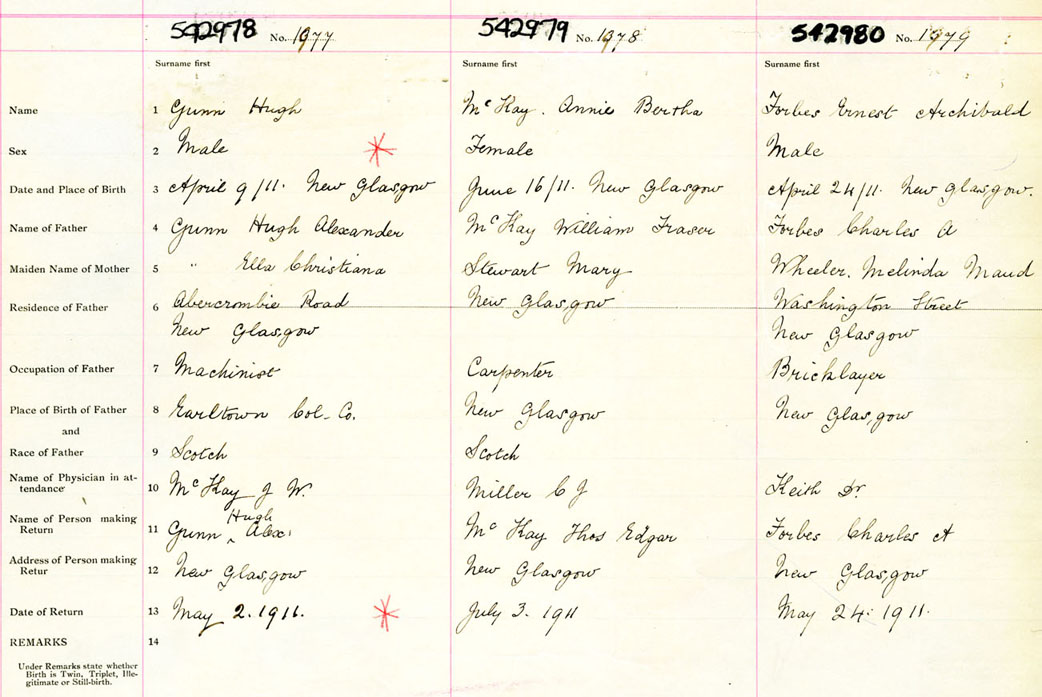 542978 No. 1977 542979 No. 1978 542980 No. 1979
Surname first Surname first Surname first
Name 1 Gunn Hugh McKay. Annie Bertha Forbes Ernest Archibald
Sex 2 Male Female Male
Date and Place of Birth 3 April 9/11. New Glasgow June 16/11. New Glasgow April 24/11. New Glasgow.
Name of Father 4 Gunn Hugh Alexander McKay William Fraser Forbes Charles A
Maiden Name of Mother 5 " Ella Christiana Stewart Mary Wheeler. Melinda Maud
Residence of Father 6 Abercrombie Road New Glasgow Washington Street
New Glasgow New Glasgow
Occupation of Father 7 Machinist Carpenter Bricklayer
Place of Birth of Father 8 Earltown Col-Co. New Glasgow New Glasgow
and
Race of Father 9 Scotch Scotch
Name of Physician in at-
tendance 10 McKay J W. Miller C J Keith Dr
Name of Person making Hugh
Return 11 Gunn ^ Alex. McKay Thos Edgar Forbes Charles A
Address of Person making
Retur 12 New Glasgow New Glasgow New Glasgow
Date of Return 13 May 2. 1911. July 3. 1911 May 24. 1911.
REMARKS 14
Under Remarks state whether
Birth is Twin, Triplet, Ille-
gitimate or Still-birth.